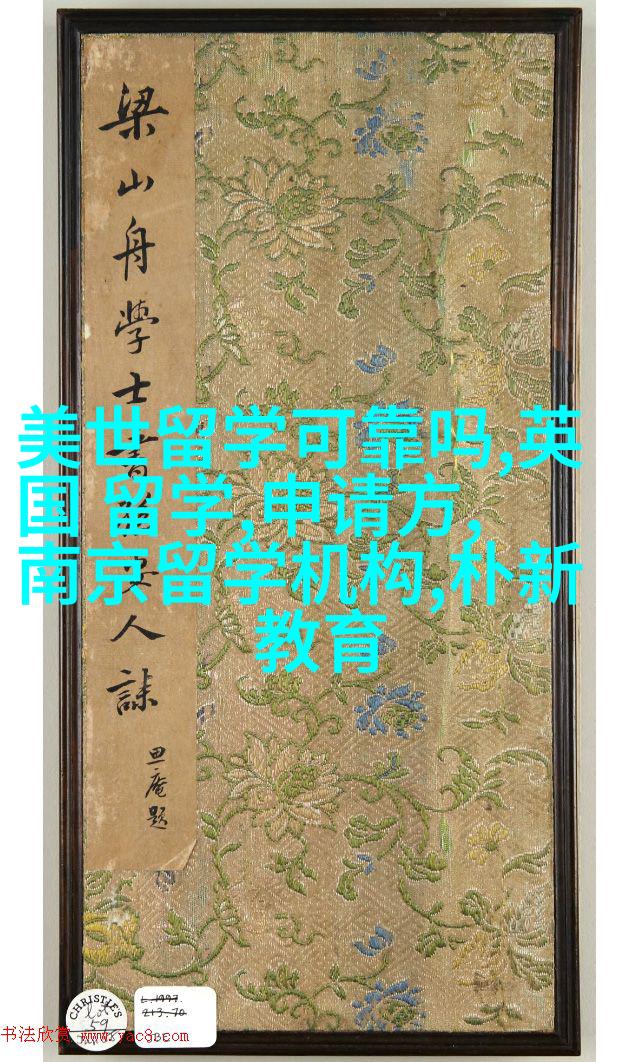 梁山舟學士書人
庵題
美世留学可靠吗,英
国 留学,申请方,
南京留学机构,朴新
教育
CHRISTIE'S
lot
59
L.1997.
213.70
书法欣赏 www.yac8.com